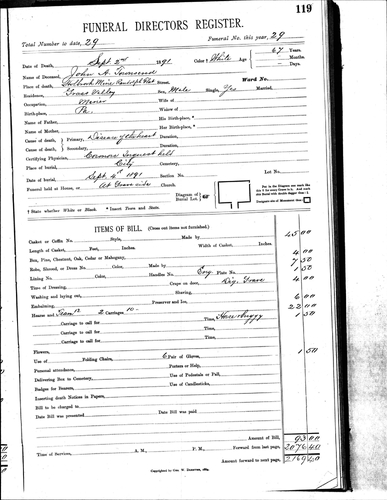 119
FUNERAL DIRECTORS REGISTER.
Total Number to date, 29 Funeral No. this year, 29
Date of Death, Sept 2nd 1891 Color † White Age 67 Years.
Name of Deceased, John A. Townsend Months.
Place of death, Street. Ward No. Days.
Residence, Grass Valley Sex, Male Single, Yes Married.
Occupation, Miner Wife of
Birthplace, Pa. Widow of
Name of Father, His Birth-place, *
Name of Mother, Her Birth-place, *
Cause of death, Primary, Disease of the heart
Cause of death, Secondary, Duration of
Certifying Physician, Coroners Inquest held
Place of burial, City Cemetery,
Date of burial, Sept. 4th 1891 Section No. Lot No.
Funeral held at House, or At Grave side Church.
Diagram of Burial Lot
† State whether White or Black. * Insert Town and State.
ITEMS OF BILL. (Cross out items not furnished.)
Casket or Coffin No. Style, 45 00
Length of Casket, Feet, Inches. Width of Casket, Inches.
Box, Pine, Chestnut, Oak, Cedar or Mahogany, 4 00
Robe, Shroud, or Dress No. Color, Made, 7 50
Lining No. Color, Handles No. Eng. Plate No. 1 50
Time of Dressing, Crape on door, Dig. Grave 4 00
Washing and laying out, Shaving,
Embalming, Preserver and Ice, 6 00
Hearse and Team 12 2 Carriages 10 - 22 00
Carriage to call for Time, Horse & buggy 1 50
Carriage to call for Time,
Carriage to call for Time,
Flowers,
Use of Folding Chairs, 6 Pair of Gloves, 1 50
Funeral attendance, Porters or Help,
Delivering Box to Cemetery, Use of Pedestals or Pall,
Badges for Bearers, Use of Candlesticks,
Inserting death Notices in Papers,
Bill to be charged to
Date Bill was presented Date Bill was paid
Amount of Bill, 93 00
Time of Services, A. M., P. M., Forward from last page, 2076 40
Amount forward to next page, 2169 40